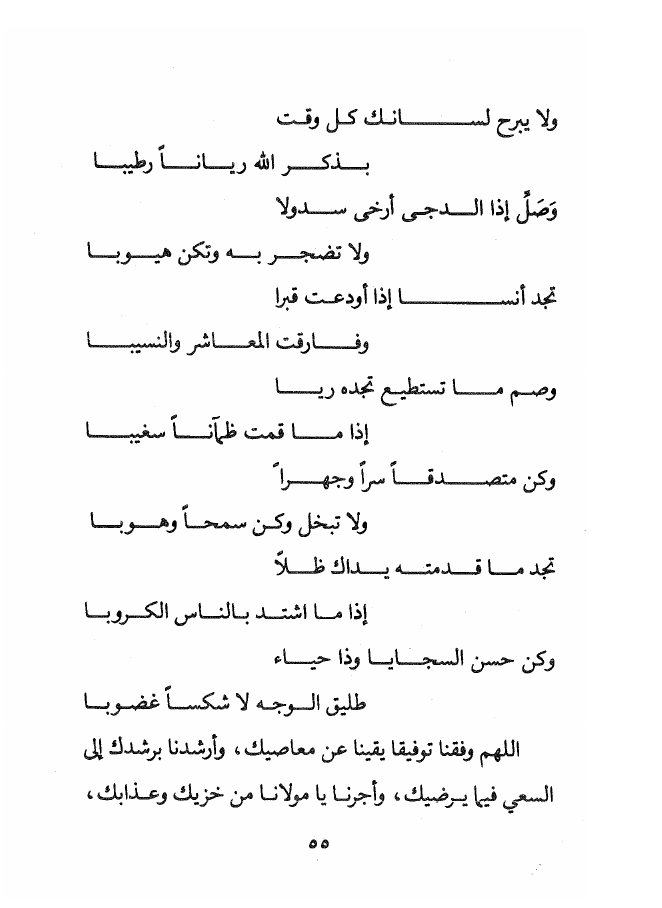 ولا يبرح لسانك كل وقت
بذكر الله رياناً رطيبا
وَصَلِّ إذا الدجى أرخى سدولا
ولا تضجر به وتكن هيوبا
تجد أنسا إذا أودعت قبرا
وفارقت المعاشر والنسيبا
وصم ما تستطيع تجده ريا
إذا ما قمت ظمآناً سغيبا
وكن متصدقاً سراً وجهراً
ولا تبخل وكن سمحاً وهوبا
تجد ما قدمته يداك ظلاً
إذا ما اشتد بالناس الكروبا
وكن حسن السجايا وذا حياء
طليق الوجه لا شكساً غضوبا
اللهم وفقنا توفيقا يقينا عن معاصيك، وأرشدنا برشدك إلى
السعي فيما يرضيك، وأجرنا يا مولانا من خزيك وعذابك،
٥٥